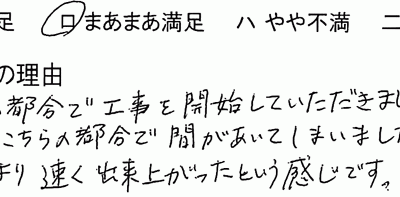 足 ロ まあまあ満足 ハ やや不満 ニ
の理由
都合で工事を開始していただきまし
こちらの都合で間があいてしまいました
まり速く出来上がったという感じです。